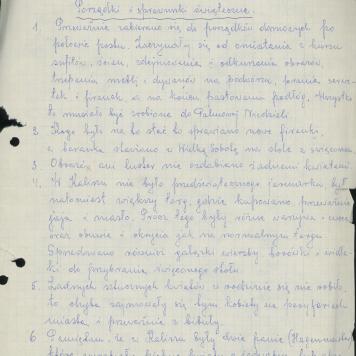 Porządki i sprawunki świąteczne.
1. Przeważnie zabierano się do porządków domowych po
połowie postu. Zaczynały się od omiatania z kurzu
sufitów, ścian, zdejmowania i odkurzania obrazów,
trzepania mebli, dywanów na podwórzu, prania serwe-
tek i firanek, a na końcu pastowania podłóg. Wszystko
to musiało być zrobione do Palmowej Niedzieli.
2. Kogo było na to stać to sprawiano nowe firanki,
a baranka stawiano w Wielką Sobotę na stole z święconym.
3. Obrazów ani luster nie ozdabiano żadnymi kwiatami.
4. W Kaliszu nie było przedświątecznego jarmarku, był
natomiast większy targ, gdzie kupowano przeważnie
jaja i masło. Prócz tego były różne warzywa i owoce
oraz obuwie i okrycia jak na normalnym targu.
Sprzedawano również gałązki wierzby, borówki i widła-
ki do przybrania święconego stołu.
5. Żadnych sztucznych kwiatów w rodzinie się nie robiło,
to chyba zajmowały się tym kobiety na peryferiach
miasta i przeważnie z bibuły.
6. Pamiętam, że w Kaliszu były dwie panie
które